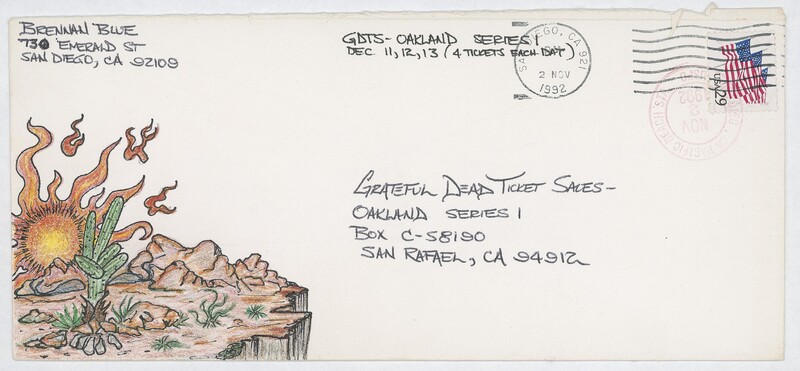 BRENNAN BLUE
730 EMERAND ST
SAN DIEGO, CA 92109
GDTS- OAKLAND SERIES 1
DEC 11, 12, 13 (4 TICKETS EACH DAY)
SAN DIEGO, CA 921
2 NOV
1992
USA 29
NOV
2
1992
GRATEFUL DEAD TICKET SALES-
OAKLAND SERIES 1
BOX C-58190
SAN RAFAEL, CA 94912